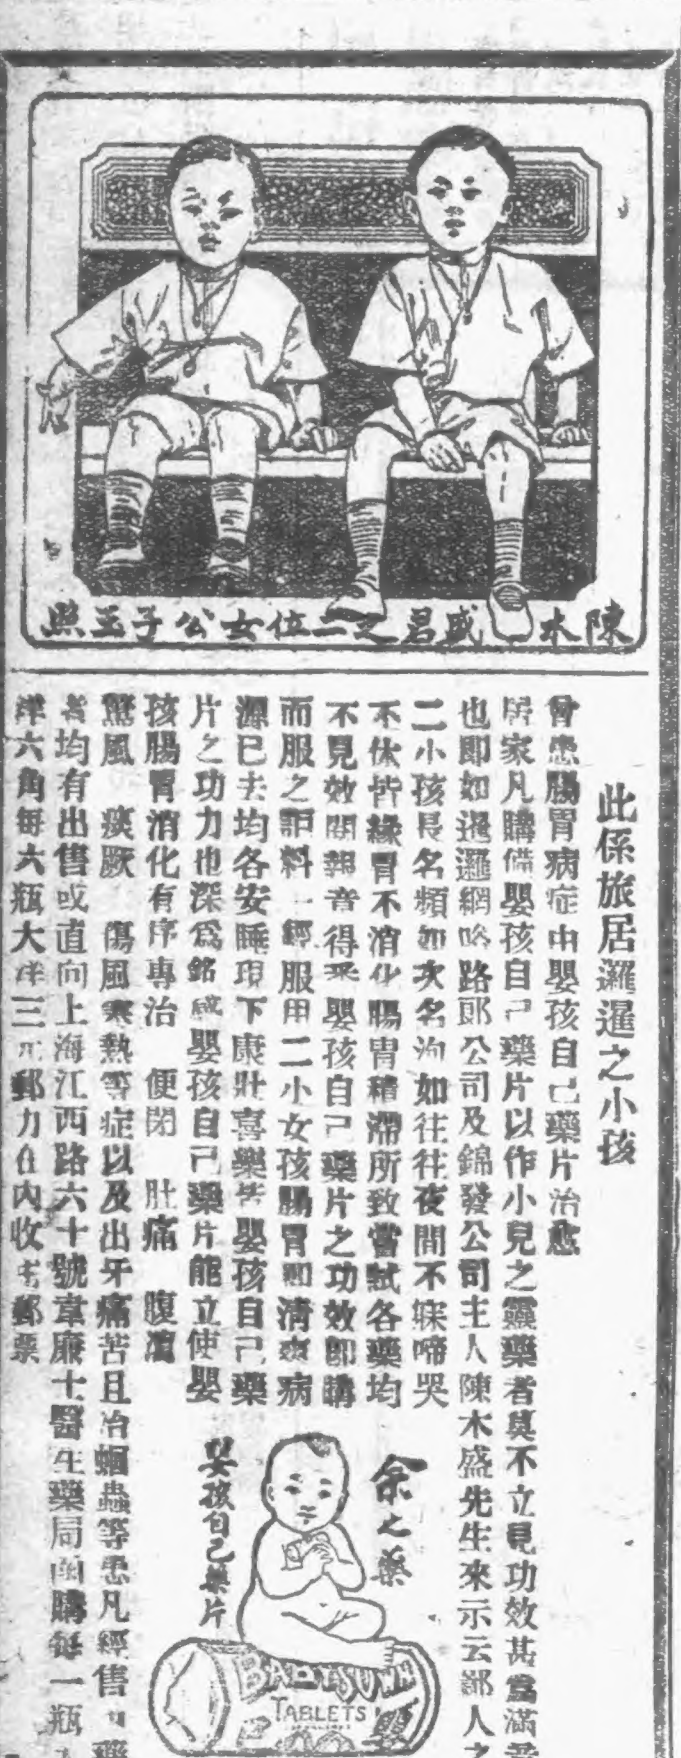 陳木盛君之二位女公子玉照
此係旅居邏暹之小孩
曾患腸胃病症由嬰孩自己藥片治愈
居家凡購備嬰孩自己藥片以作小兒之靈藥者莫不立見功效甚為滿意
也即如暹邏網咯路郎公司及錦發公司主人陳木盛先生來示云鄙人之
二小孩長名頻如次名洵如往往夜間不寐啼哭
不休皆緣胃不消化腸胃積滯所致嘗試各藥均
不見效閱報章得悉嬰孩自己藥片之功效即購
而服之詎料一經服用二小女孩腸胃即清爽病
源已去均各安睡現下康壯喜樂皆嬰孩自己藥
片之功力也深為銘感嬰孩自己藥片能立使嬰
孩腸胃消化有序專治 便閉 肚痛 腹瀉
驚風 痰厥 傷風寒熱等症以及出牙痛苦且治蛔蟲等患凡經售西藥
者均有出售或直向上海江西路六十號韋廉士醫生藥局函購每一瓶大
洋六角每六瓶大洋三元郵力在內收寄郵票
余之藥
嬰孩自己藥片
BABY'S OWN
TABLETS